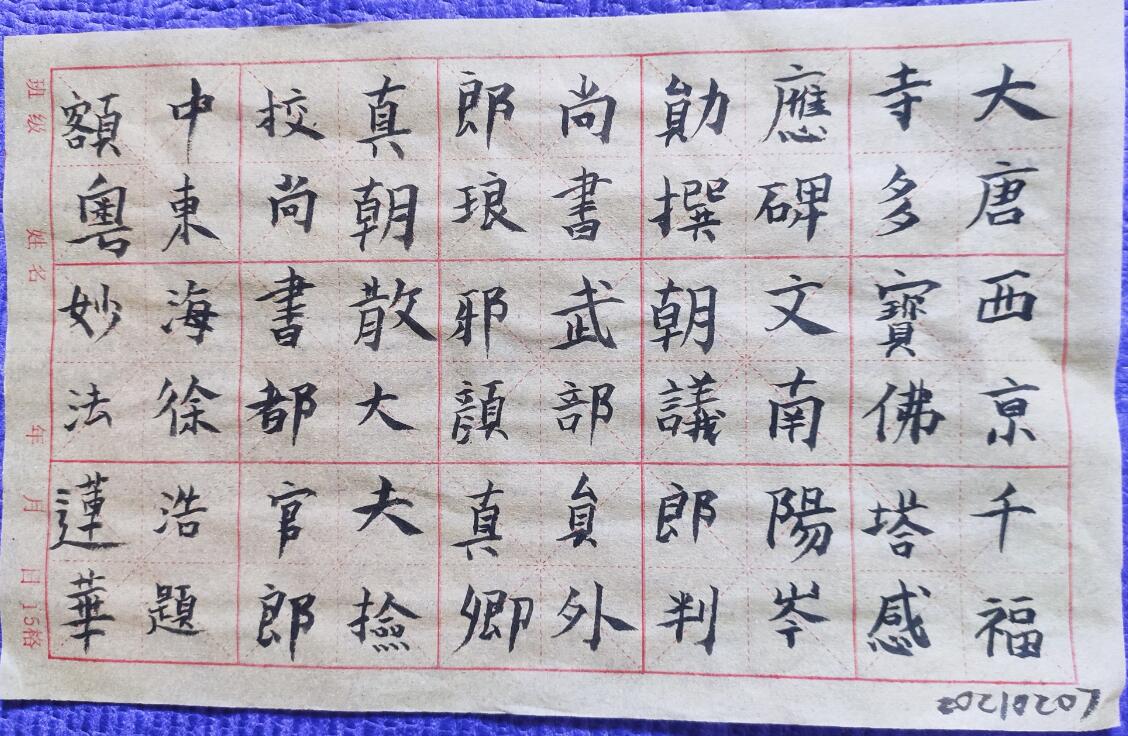 大唐西亰千福
寺多寶佛塔感
應碑文南陽岑
勛撰朝議郎判
尚書武部貟外
郎琅邪顏真卿
真朝散大夫撿
校尚書都官郎
中東海徐浩題
額粵妙法蓮華
班级 姓名 年 月 日 15格
20210207